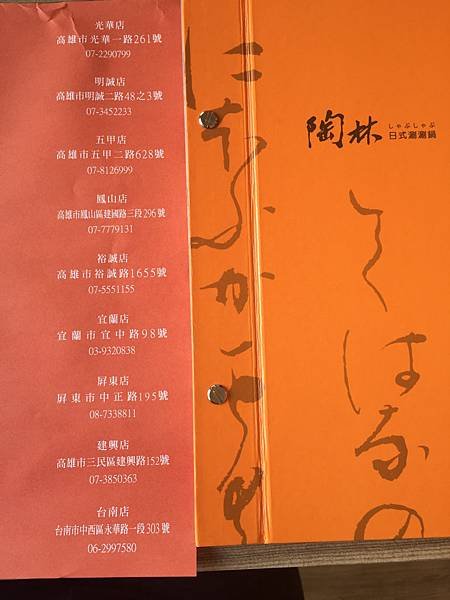 光華店
高雄市光華一路261號
07-2290799
明誠店
高雄市明誠二路48之3號
07-3452233
五甲店
高雄市五甲二路628號
07-8126999
鳳山店
高雄市鳳山區建國路三段296號
07-7779131
裕誠店
高雄市裕誠路1655號
07-5551155
宜蘭店
宜蘭市宜中路98號
03-9320838
屏東店
屏東市中正路195號
08-7338811
建興店
高雄市三民區建興路152號
07-3850363
台南店
台南市中西區永華路一段303號
06-2997580
陶林
しゃぶしゃぶ
日式涮涮鍋